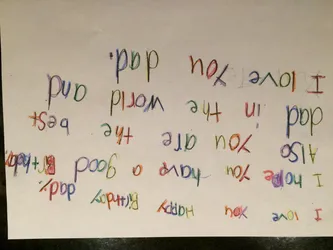 I love you Happy Birthday dad.
I hope you have a good Birthday
Also you are the best
dad in the world and
I love you dad.